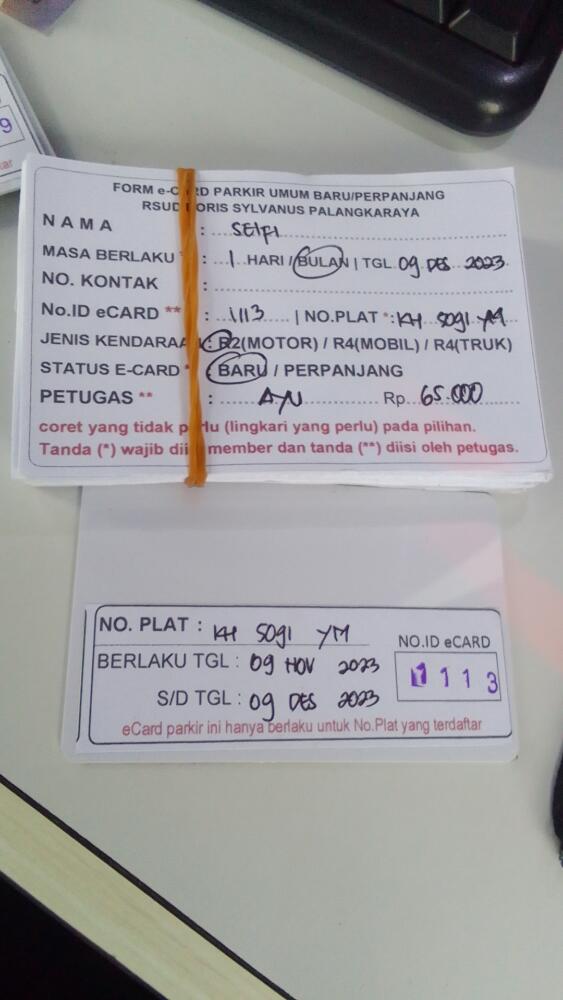 9
ar
FORM e-CARD PARKIR UMUM BARU/PERPANJANG
RSUD DORIS SYLVANUS PALANGKARAYA
NAMA : SELFI
MASA BERLAKU : 1 HARI / BULAN | TGL 09 DES 2023
NO. KONTAK :
No.ID eCARD ** : 1113 | NO.PLAT * : KH 5091 YM
JENIS KENDARAAN : R2(MOTOR) / R4(MOBIL) / R4(TRUK)
STATUS E-CARD * : BARU / PERPANJANG
PETUGAS ** : AYU Rp. 65.000
coret yang tidak perlu (lingkari yang perlu) pada pilihan.
Tanda (*) wajib diisi member dan tanda (**) diisi oleh petugas.
NO. PLAT : KH 5091 YM
NO.ID eCARD
BERLAKU TGL : 09 NOV 2023
1 1 1 3
S/D TGL : 09 DES 2023
eCard parkir ini hanya berlaku untuk No.Plat yang terdaftar